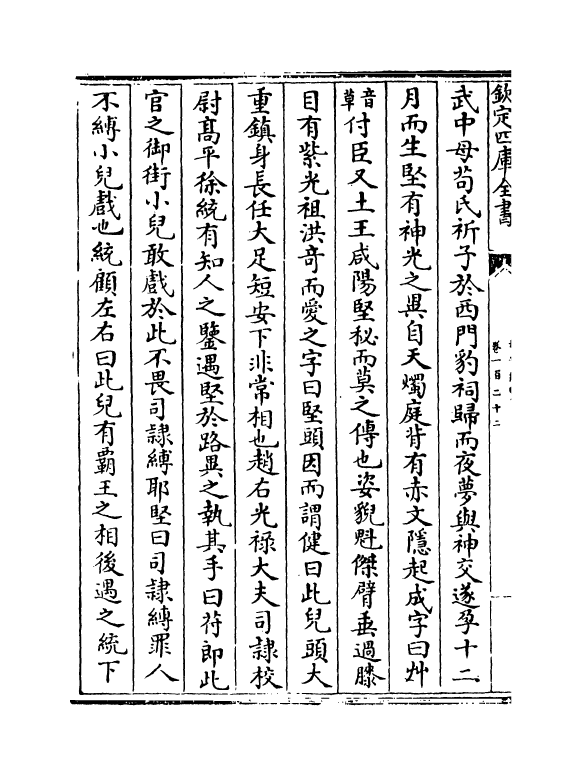 欽定四庫全書
卷一百二十二
武中母茍氏祈子於西門豹祠歸而夜夢與神交遂孕十二
月而生堅有神光之異自天燭庭背有赤文隱起成字曰艸
音草付臣又土王咸陽堅秘而莫之傳也姿貌魁傑臂垂過膝
目有紫光祖洪奇而愛之字曰堅頭因而謂健曰此兒頭大
重鎮身長任大足短安下非常相也趙右光祿大夫司隸校
尉高平徐統有知人之鑒遇堅於路異之執其手曰苻郎此
官之御街小兒敢戲於此不畏司隸縛耶堅曰司隸縛罪人
不縛小兒戲也統顧左右曰此兒有霸王之相後遇之統下